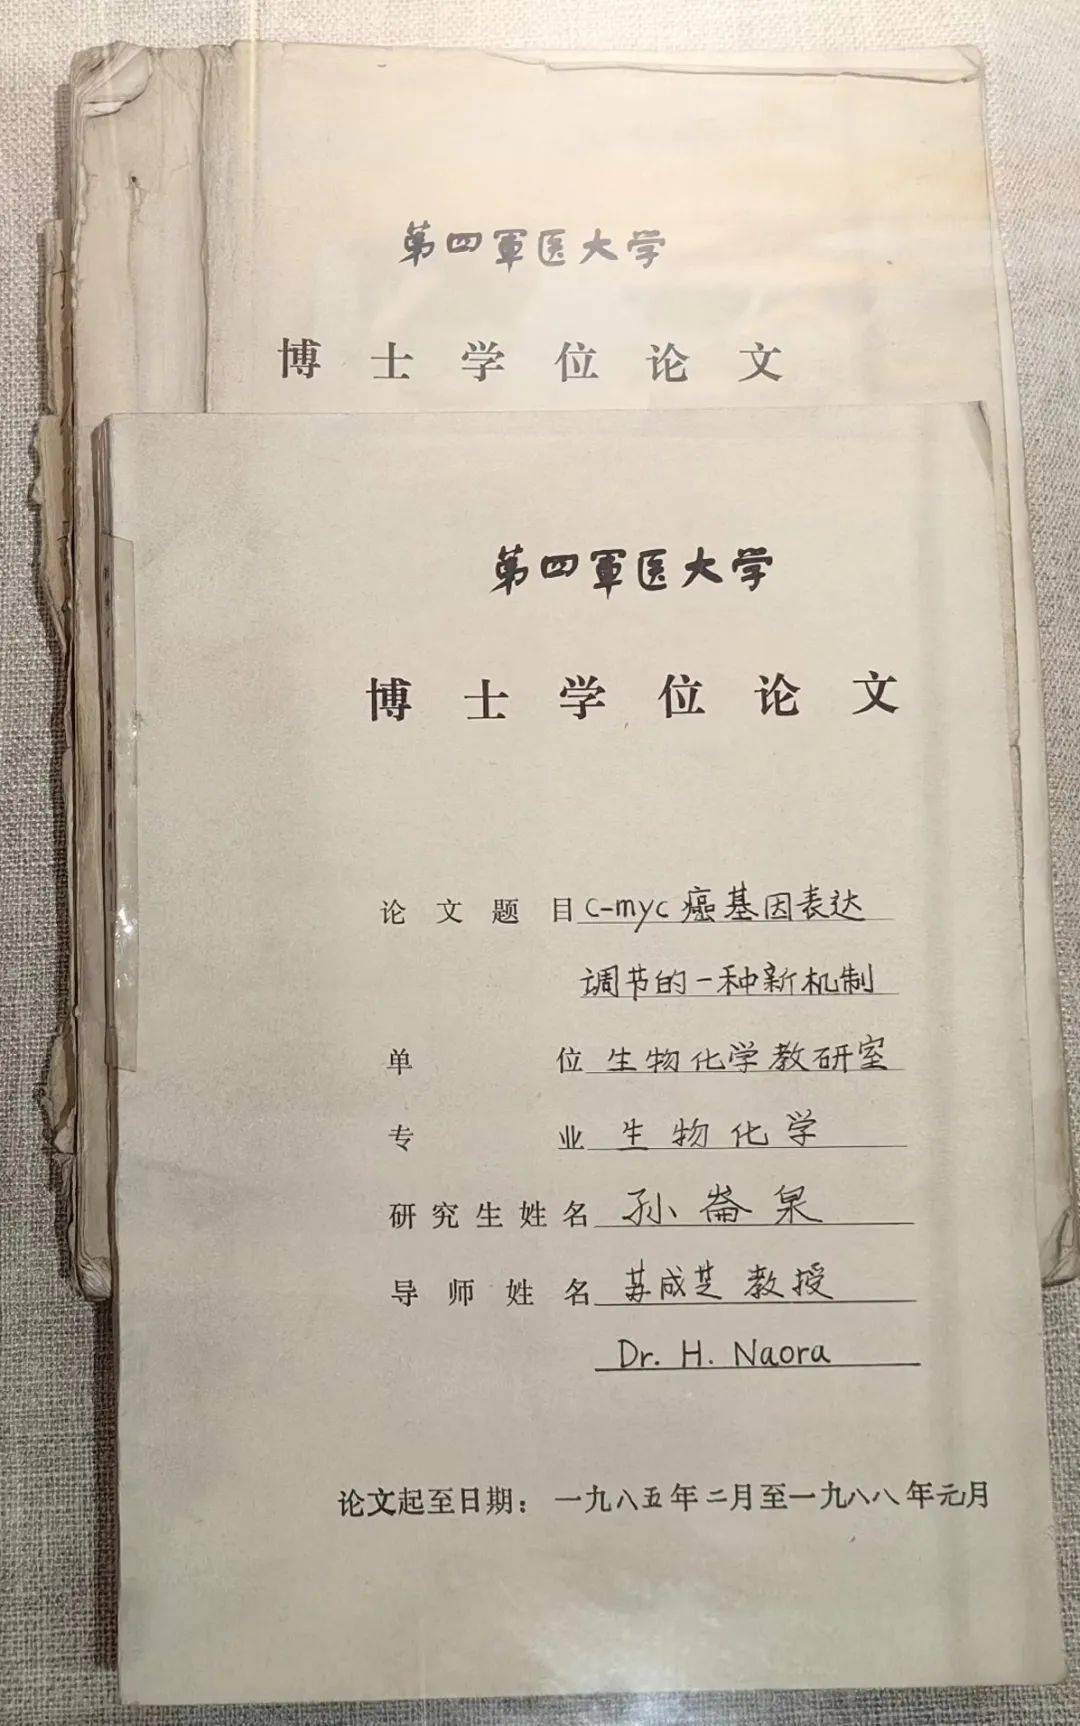 第四軍医大学
博士学位论文
第四軍医大学
博士学位论文
论文题目 c-myc 癌基因表达
调节的一种新机制
单位 生物化学教研室
专业 生物化学
研究生姓名 孙崙泉
导师姓名 苏成芝 教授
Dr. H. Naora
论文起至日期：一九八五年二月至一九八八年元月